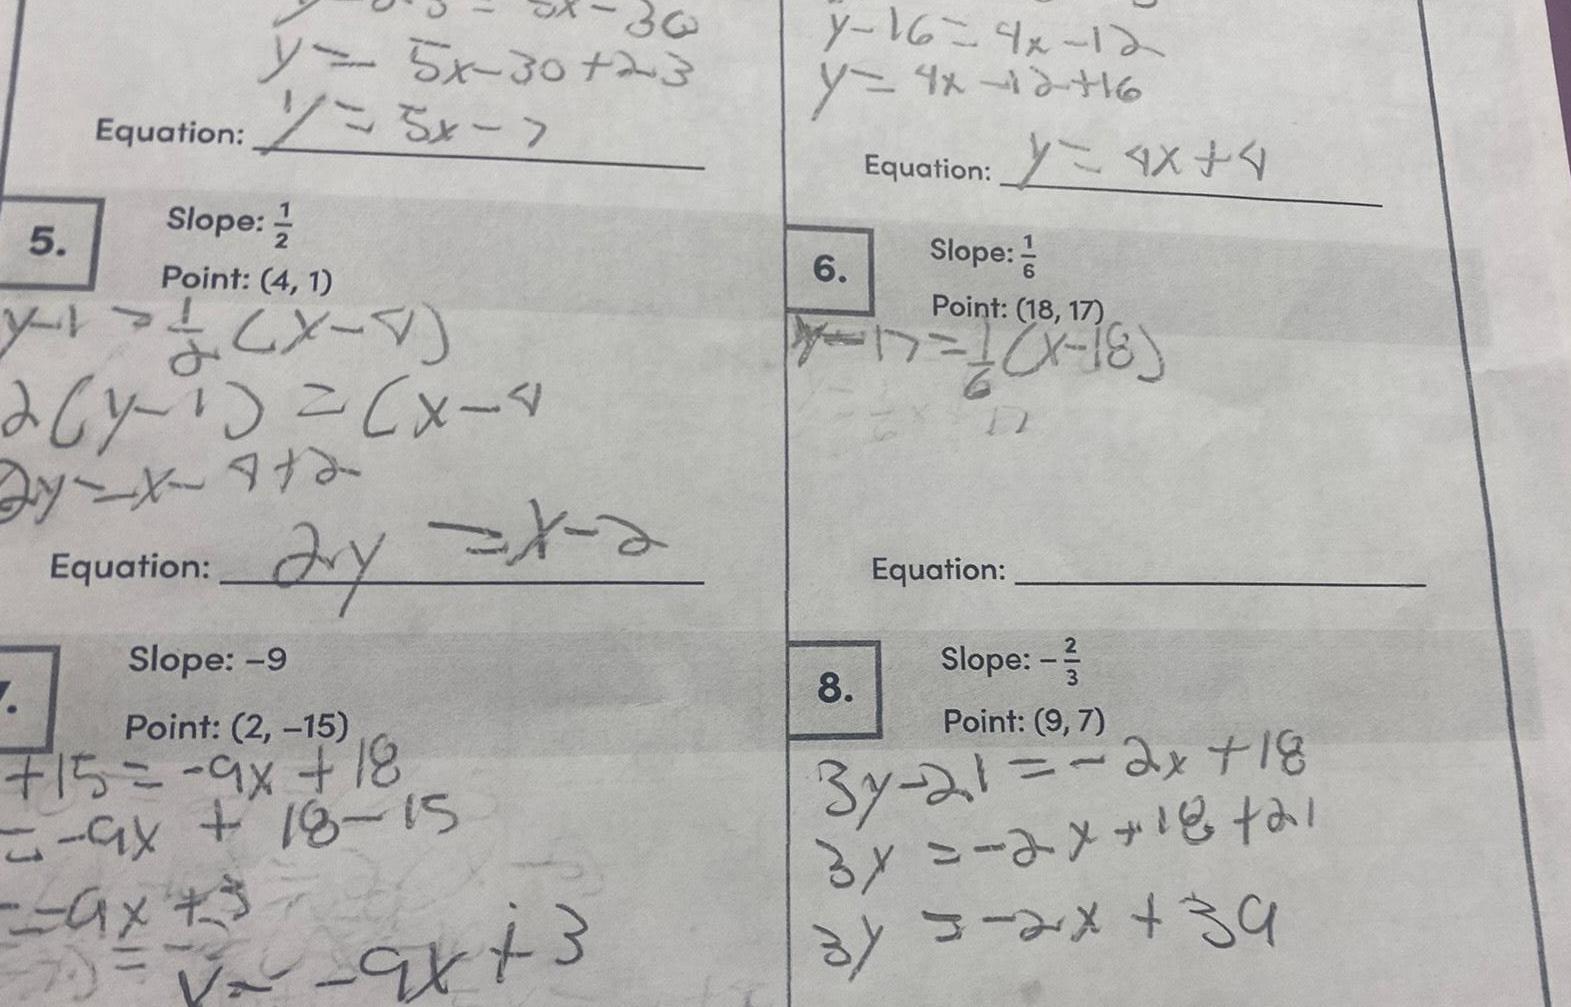 = 5x-30
y= 5x-30+23
Equation: y= 5x-7
y-16=4x-12
y= 4x-12+16
Equation: y= 4x+4
5.
Slope: 1/2
Point: (4, 1)
y-1 = 1/2 (x-4)
2(y-1) = (x-4
2y=x-4+2
Equation: 2y =x-2
6.
Slope: 1/6
Point: (18, 17)
y-17=1/6(x-18)
17
Equation:
Slope: -9
Point: (2, -15)
+15=-9x+18
=-9x + 18-15
=-9x+3
y= -9x+3
8.
Slope: -2/3
Point: (9, 7)
3y-21=-2x+18
3y =-2x+18+21
3y =-2x+39